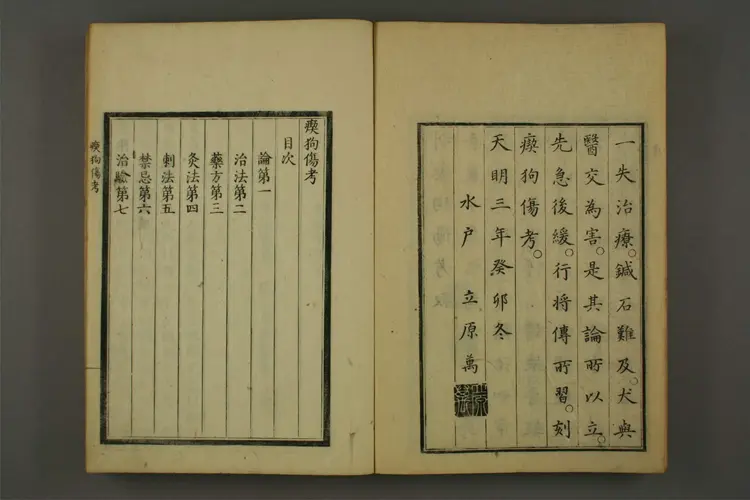 一失治療。鍼石難及。犬與
醫交為害。是其論所以立。
先急後緩。行将傳所習。刻
瘈狗傷考。
天明三年癸卯冬
水户 立原萬
瘈狗傷考
目次
論第一
治法第二
藥方第三
灸法第四
刺法第五
禁忌第六
治驗第七
瘈狗傷考